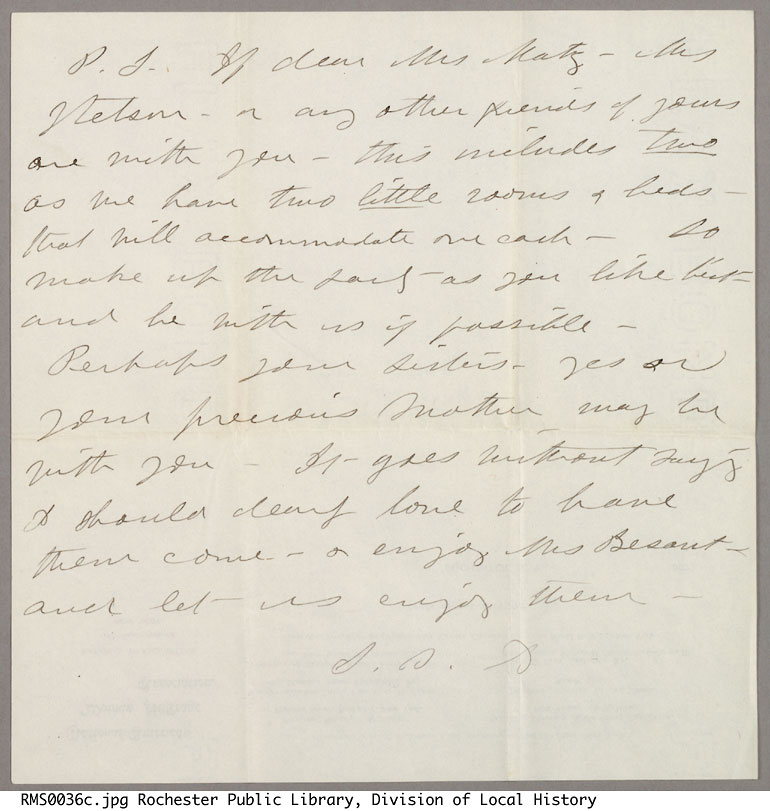 P. S. If dear Mrs Matz - Mrs
Stetson - or any other friends of yours
are with you - this includes two
as we have two little rooms & beds -
that will accommodate one each - So
make up the party as you like best -
and be with us if possible -
Perhaps your sisters - yes or
your precious Mother may be
with you - It goes without saying
I should dearly love to have
them come - & enjoy Mrs Besant -
and let us enjoy them -
S. B. A
RMS0036c.jpg Rochester Public Library, Division of Local History